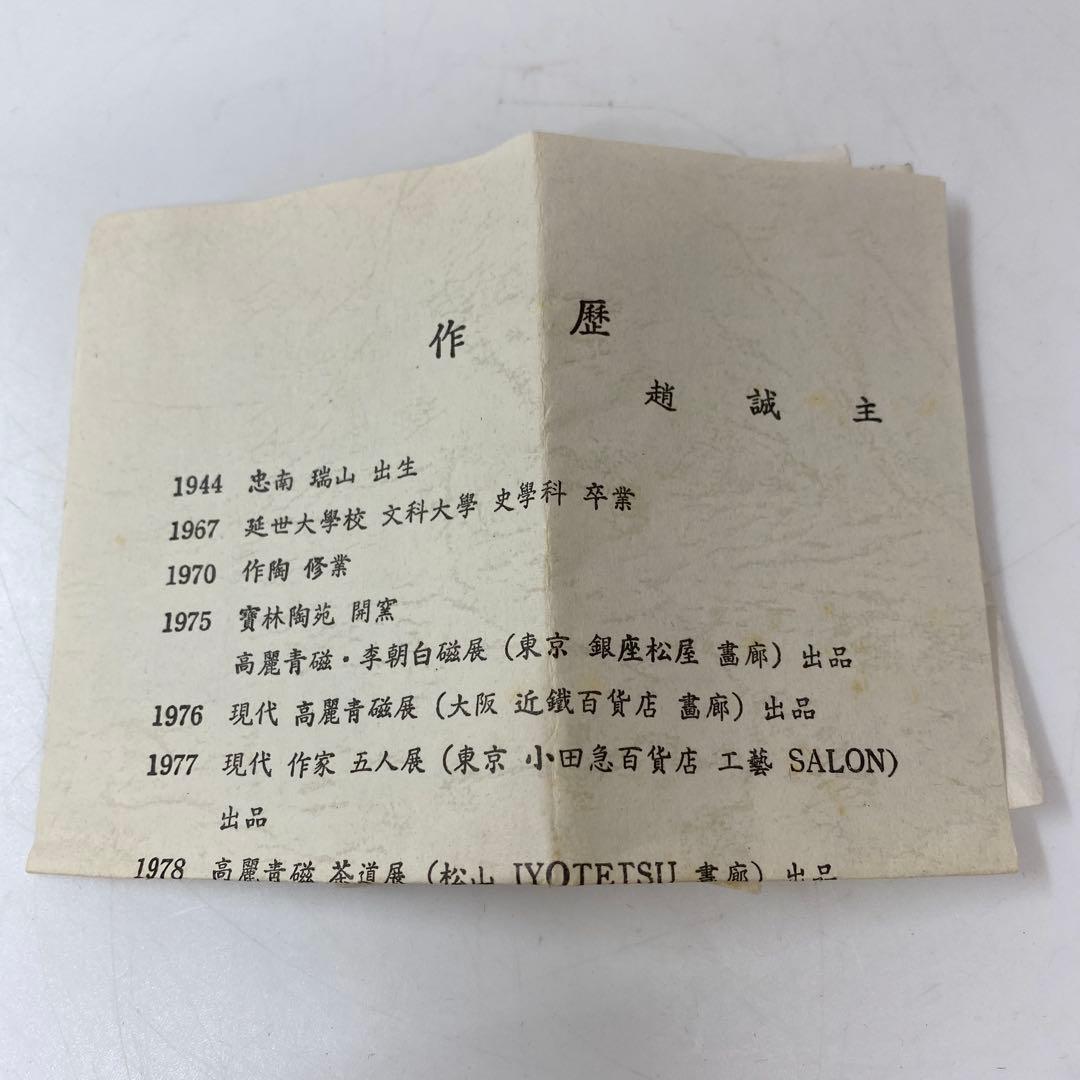 作 歷
趙 誠 主
1944 忠南 瑞山 出生
1967 延世大學校 文科大學 史學科 卒業
1970 作陶 修業
1975 寶林陶苑 開窯
高麗青磁・李朝白磁展 (東京 銀座松屋 畵廊) 出品
1976 現代 高麗青磁展 (大阪 近鐵百貨店 畵廊) 出品
1977 現代 作家 五人展 (東京 小田急百貨店 工藝 SALON)
出品
1978 高麗青磁 茶道展 (松山 IYOTETSU 畵廊) 出品